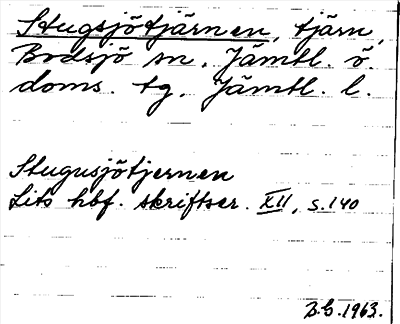 Stugsjötjärnen, tjärn,
Bodsjö sn. Jämtl. ö.
doms. tg, Jämtl. l.
Stugusjötjernen
Lits hbf. skriftser. XII, s. 140
B.G. 1963.